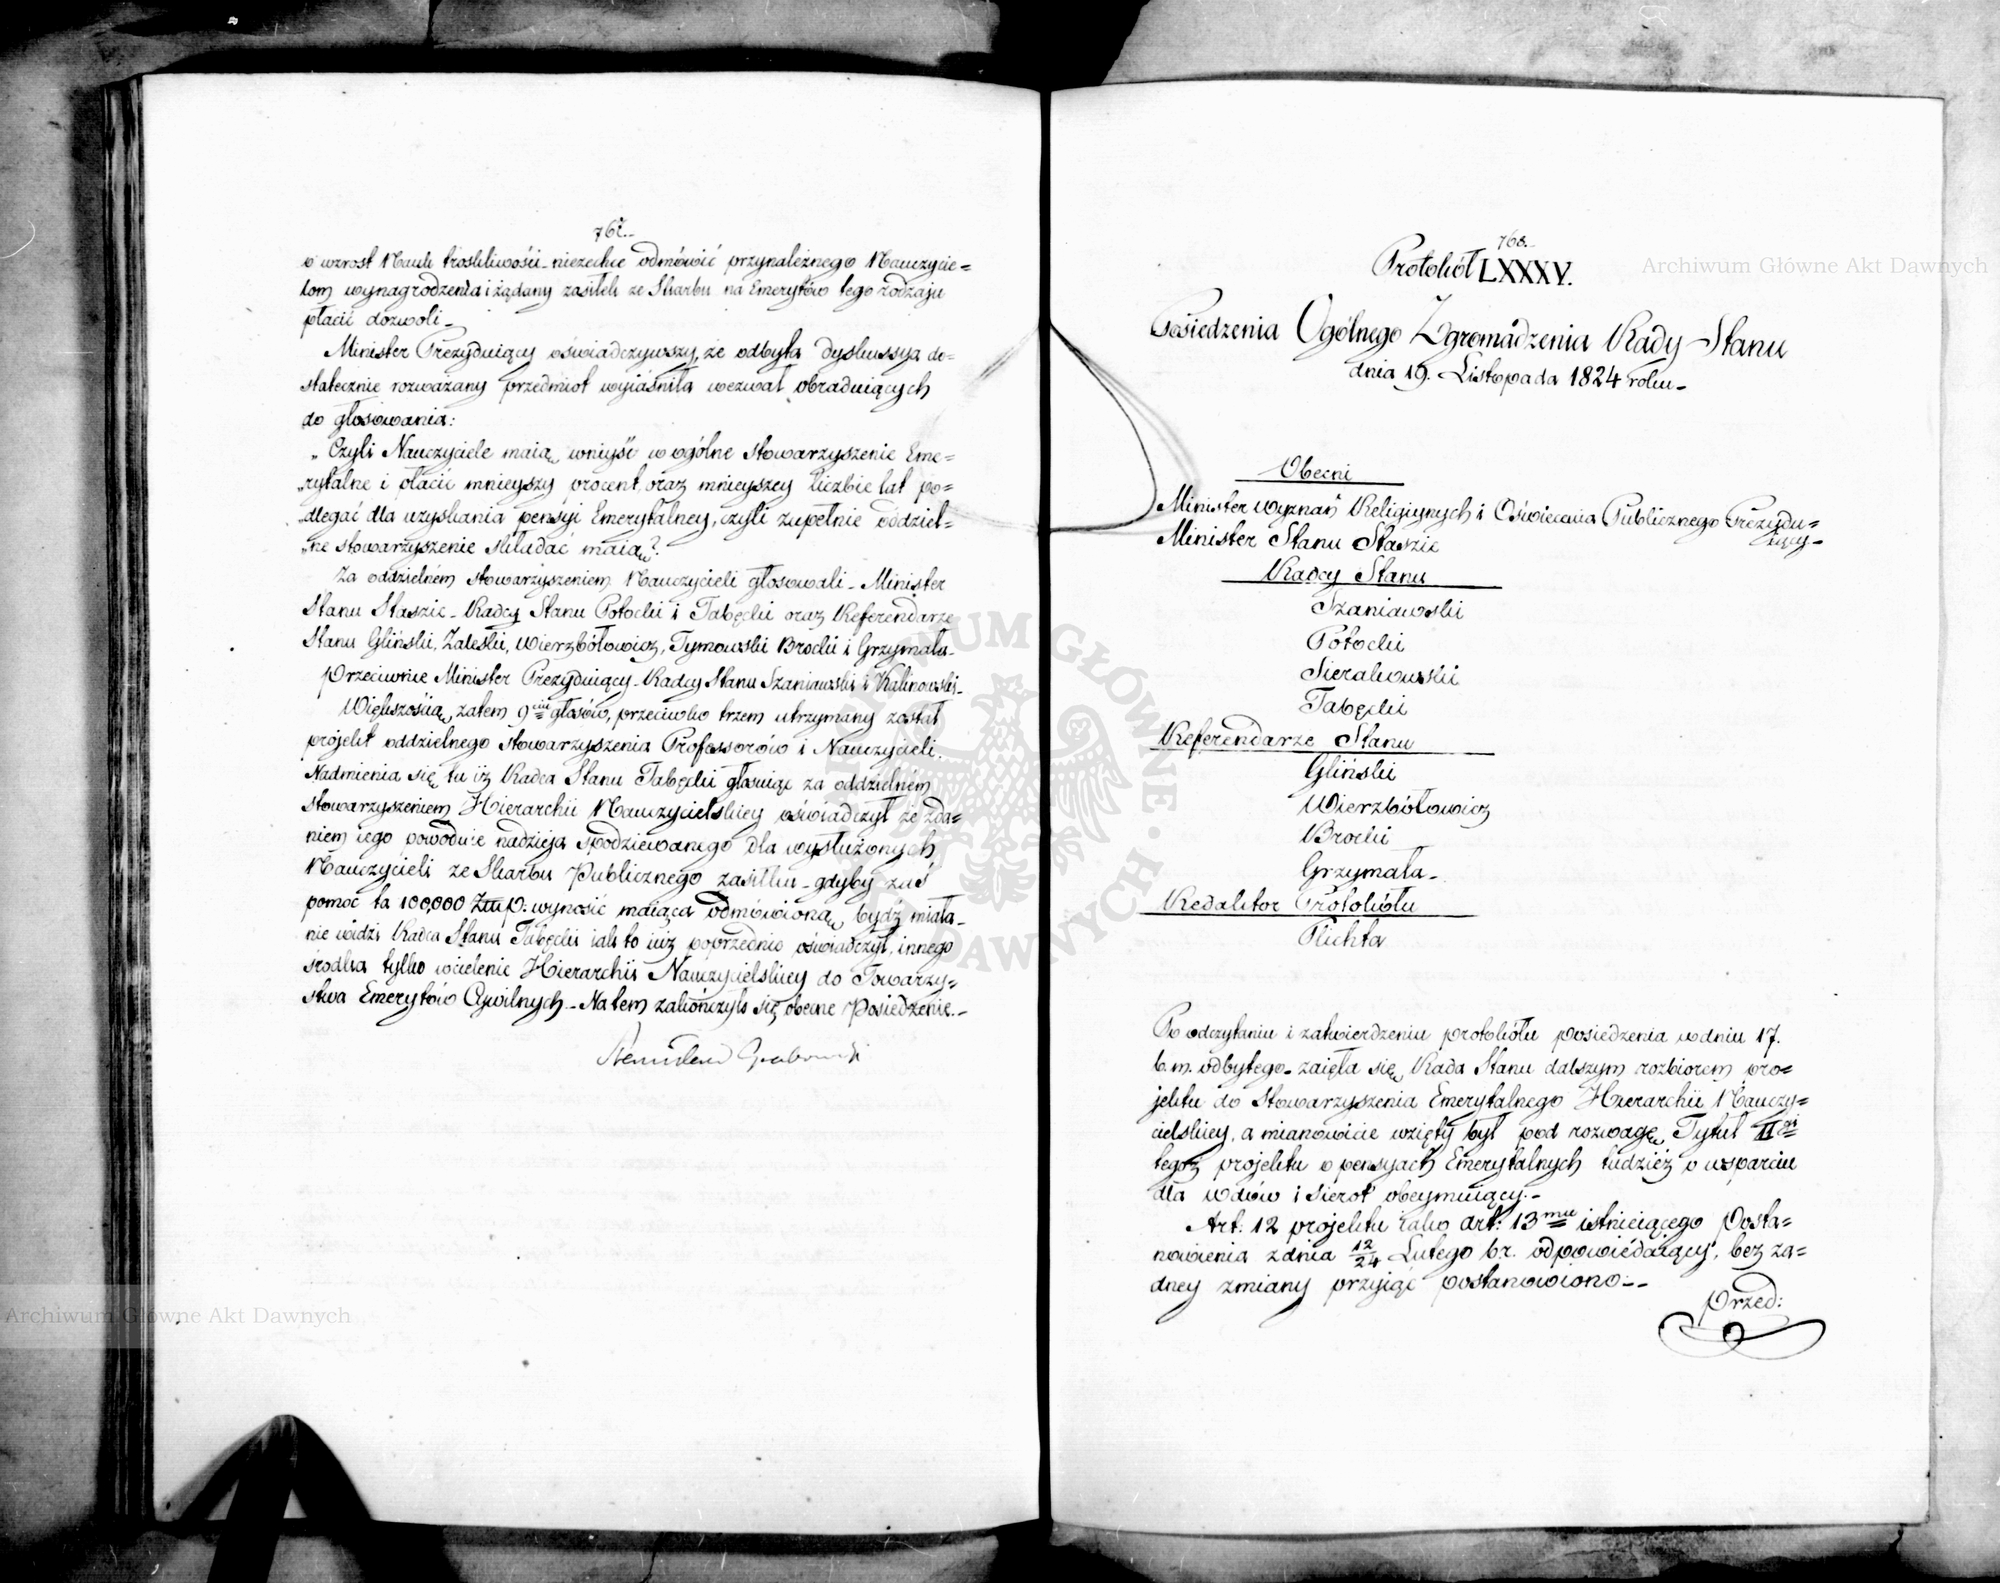 767.
o wzrost Nauk troskliwości niezechce odmówić przynależnego Nauczycie=
lom wynagrodzenia i żądany zasiłek ze Skarbu na Emerytów tego rodzaju
płacić dozwoli.
Minister Prezyduiący oświadczywszy, że odbyta dyskussya do=
statecznie rozważany przedmiot wyiaśniła wezwał obraduiących
do głosowania:
„Czyli Nauczyciele maią wniyść w ogólne stowarzyszenie Eme=
„rytalne i płacić mnieyszy procent, oraz mnieyszey liczbie lat po=
„dlegać dla uzyskania pensyi Emerytalney, czyli zupełnie oddziel=
„ne stowarzyszenie składać maią?
Za oddzielném stowarzyszeniem Nauczycieli głosowali - Minister
Stanu Staszic - Radcy Stanu Potocki i Tabęcki oraz Referendarze
Stanu Gliński, Zaleski, Wierzbołowicz, Tymowski Brocki i Grzymała.
Przeciwnie Minister Prezyduiący - Radcy Stanu Szaniawski i Kalinowski -
Większością zatem 9ciu głosów, przeciwko trzem utrzymany został
projekt oddzielnego stowarzyszenia Professorów i Nauczycieli.
Nadmienia się tu iż Radca Stanu Tabęcki głosuiąc za oddzielném
stowarzyszeniem Hierarchii Nauczycielskiey oświadczył że zda=
niem iego powoduie nadzieja spodziewanego dla wysłużonych
Nauczycieli ze Skarbu Publicznego zasiłku - gdyby zaś
pomoc ta 100,000 Złp. wynosić maiąca odmówioną bydź miała -
nie widzi Radca Stanu Tabęcki iak to iuż poprzednio oświadczył, innego
srodka tylko wcielenie Hierarchii Nauczycielskiey do Towarzy=
stwa Emerytów Cywilnych - Na tem zakończyło się obecne Posiedzenie.-
Stanisław Grabowski
768.
Protokół LXXXV.
Posiedzenia Ogólnego Zgromadzenia Rady Stanu
dnia 19. Listopada 1824 roku -
Obecni
Minister Wyznań Religiynych i Oświecenia Publicznego Prezydu=
iący -
Minister Stanu Staszic
Radcy Stanu
Szaniawski
Potocki
Sierakowski
Tabęcki
Referendarze Stanu
Gliński
Wierzbołowicz
Brocki
Grzymała -
Redaktor Protokółu
Plichta
Po odczytaniu i zatwierdzeniu protokółu posiedzenia w dniu 17.
b. m. odbytego - zaięła się Rada Stanu dalszym rozbiorem pro=
jektu do Stowarzyszenia Emerytalnego Hierarchii Nauczy=
cielskiey, a mianowicie wzięty był pod rozwagę Tytuł IIgi
tegoż projektu o pensyach Emerytalnych tudzież o wsparciu
dla wdów i sierot obeymuiący.-
Art: 12 projektu iako art: 13mu istnieiącego Posta=
nowienia z dnia 12/24 Lutego b. r. odpowiedaiący, bez ża=
dney zmiany przyiąć postanowiono.-
Przed:
Archiwum Główne Akt Dawnych
Archiwum Główne Akt Dawnych
ARCHIWUM GŁÓWNE AKT DAWNYCH